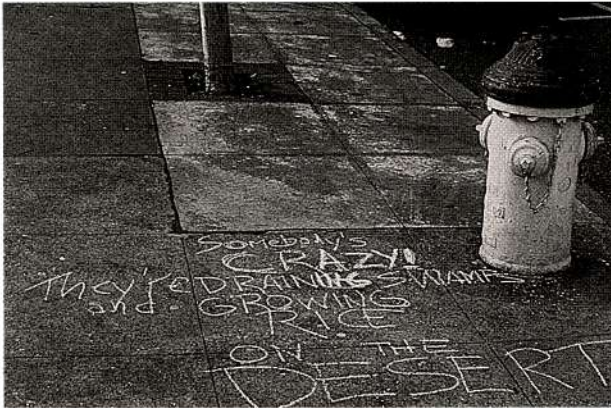 Somebody's
CRAZY!
They're DRAINING SWAMPS
and GROWING
RICE
ON THE
DESERT